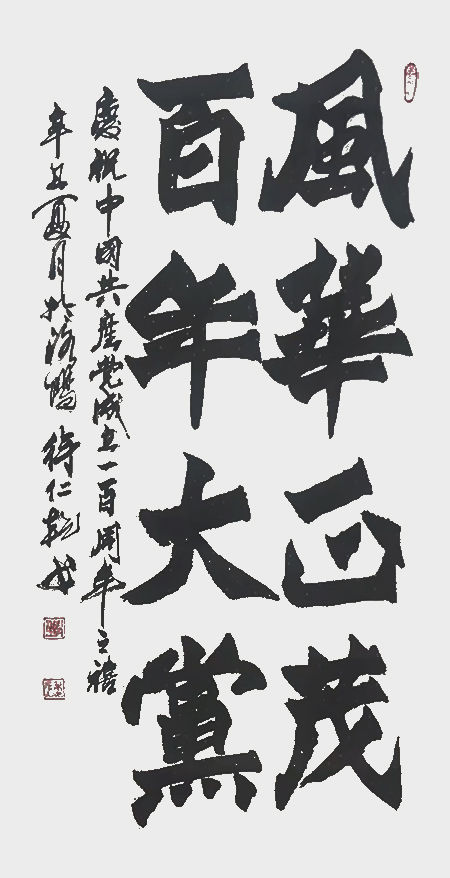 風華正茂
百年大黨
慶祝中國共產党成立一百周年之禧
辛丑夏月於洛陽 仁乾书